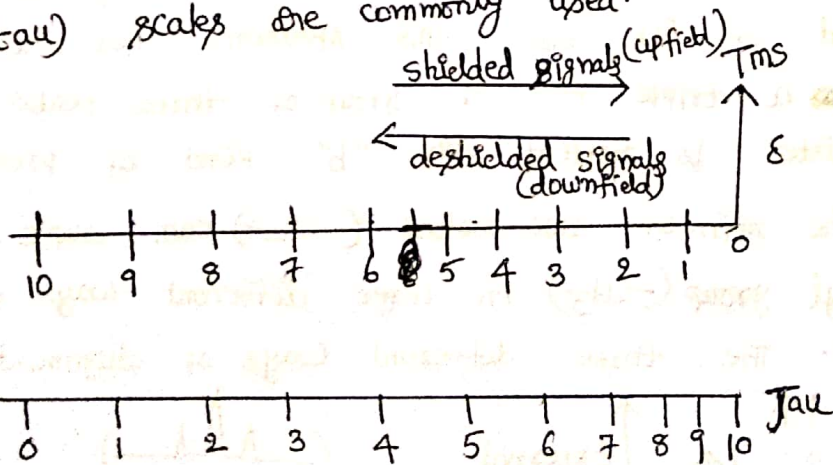 tau) scales are commonly used.
shielded signals (upfield) Tms
deshielded signals δ
(downfield)
10 9 8 7 6 5 4 3 2 1 0
0 1 2 3 4 5 6 7 8 9 10 Tau